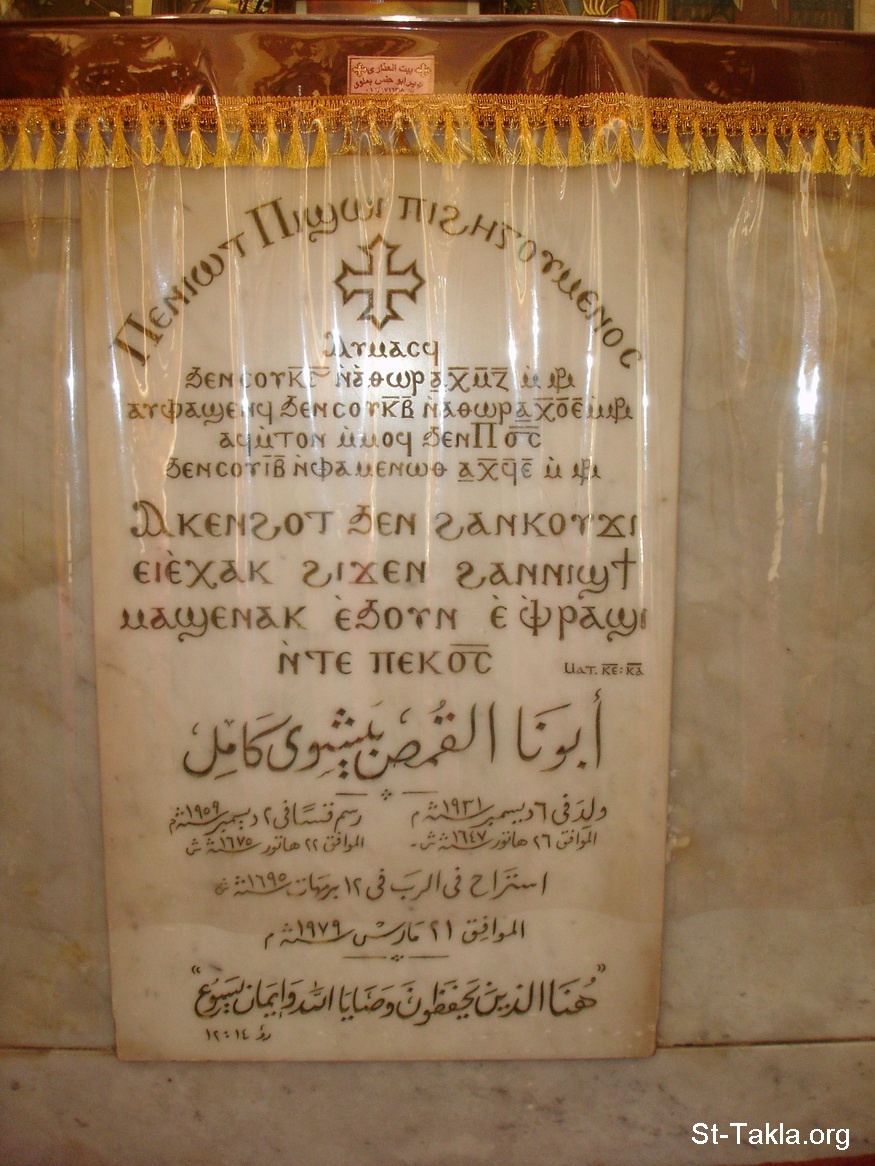 بيت العذارى
Ⲡⲉⲛⲓⲱⲧ Ⲡⲓϣⲱⲓ ⲡⲓϩⲏⲅⲟⲩⲙⲉⲛⲟⲥ
Ⲁⲩⲙⲁⲥϥ
ϧⲉⲛⲥⲟⲩⲕ̅ⲋ̅ ⲛ̀ⲁ̀ⲑⲱⲣ ⲁ̲ⲭ̅ⲙ̅ⲍ̅ ⲙ̀
ⲁⲩⲫⲁϣⲉⲛϥ ϧⲉⲛⲥⲟⲩⲕ̅ⲃ̅ ⲛ̀ⲁⲑⲱⲣ ⲁ̲ⲭ̅ⲟ̅ⲉ̅ ⲙ̀
ⲁϥⲙ̀ⲧⲟⲛ ⲙ̀ⲙⲟϥ ϧⲉⲛⲠⲟ̅ⲥ̅
ϧⲉⲛⲥⲟⲩⲓ̅ⲃ̅ ⲛ̀ⲫⲁⲙⲉⲛⲱⲑ ⲁ̲ⲭ̅ϥ̅ⲉ̅ ⲙ̀
Ⲁⲕⲉⲛϩⲟⲧ ϧⲉⲛ ϩⲁⲛⲕⲟⲩϫⲓ
ⲉⲓⲉ̀ⲭⲁⲕ ϩⲓϫⲉⲛ ϩⲁⲛⲛⲓϣϯ
ⲙⲁϣⲉⲛⲁⲕ ⲉ̀ϧⲟⲩⲛ ⲉ̀ ⲫ̀ⲣⲁϣⲓ
ⲛ̀ⲧⲉ ⲡⲉⲕⲟ̅ⲥ̅ Ⲙⲁⲧ. ⲕ̅ⲉ̅:ⲕ̅ⲁ̅
أَبونَا القُمص بَيشِوى كَامِل
ولد فى ٦ ديسمبر سنة ١٩٣١ م رسم قسًا فى ٢ ديسمبر سنة ١٩٥٩ م
الموافق ٢٦ هاتور سنة ١٦٤٧ ش الموافق ٢٢ هاتور سنة ١٦٧٥ ش
استراح فى الرب فى ١٢ برمهات سنة ١٦٩٥ ش
الموافق ٢١ مارس سنة ١٩٧٩ م
"هُنَا الذين يحفظون وصَايَا الله وَإيمَان يَسوع"
رؤ ١٤ : ١٢
St-Takla.org